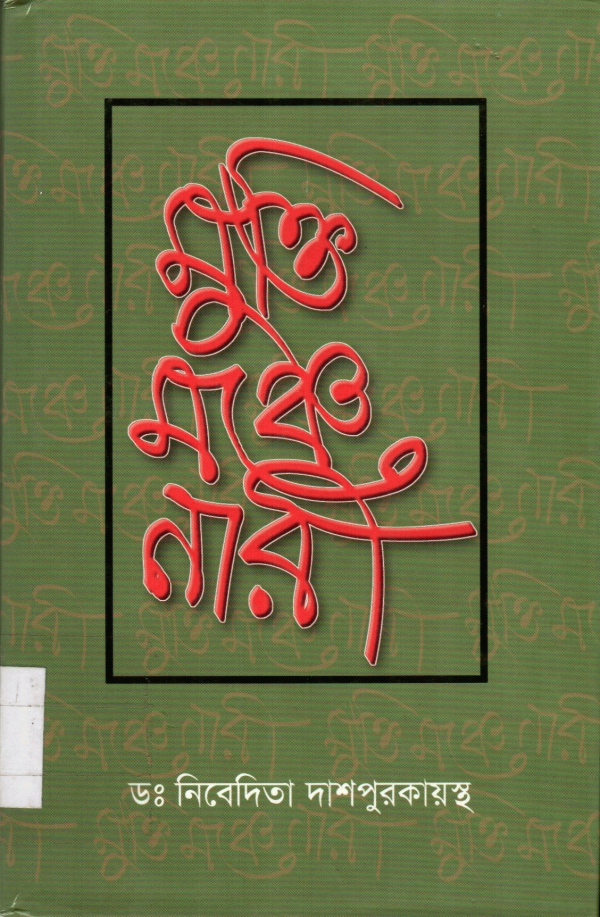 মুক্তি
মঞ্চে
নারী
ডঃ নিবেদিতা দাশপুরকায়স্থ